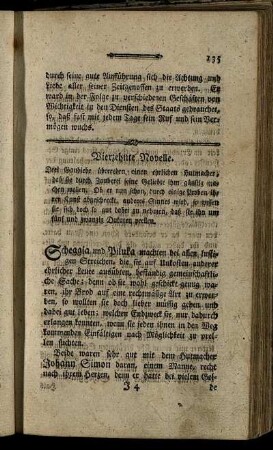 235
durch seine gute Aufführung sich die Achtung und
Liebe aller seiner Zeitgenossen zu erwerben. Er
ward in der Folge zu verschiedenen Geschäften von
Wichtigkeit in den Diensten des Staats gebrauchet,
so, daß fast mit jedem Tage sein Ruf und sein Ver-
mögen wuchs.
Vierzehnte Novelle.
Zwei Gaudiebe überreden einen ehrlichen Hutmacher,
daß sie durch Zauberei seine Geliebte ihm günstig
machen wollen. Ob er nun schon, durch einige Proben ihrer
Kunst abgeschreckt, anderes Sinnes wird, so wissen
sie sich doch so gut dabei zu nehmen, daß sie ihn um
fünf und zwanzig Dukaten prellen.
Scheggia und Piluka machten bei allen lusti-
gen Streichen, die sie auf Unkosten anderer
ehrlicher Leute ausübten, beständig gemeinschaftli-
che Sache; denn ob sie wohl geschickt genug wa-
ren, ihr Brod auf eine rechtmäßige Art zu erwer-
ben, so wollten sie doch lieber müßig gehen und
dabei gut leben; welchen Endzweck sie nur dadurch
erlangen konnten, wenn sie jeden ihnen in den Weg
kommenden Einfältigen nach Möglichkeit zu prel-
len suchten.
Beide waren sehr gut mit dem Hutmacher
Johann Simon daran, einem Manne, recht
nach ihrem Herzen, denn er hatte bei vielem Gel-
J 4
de